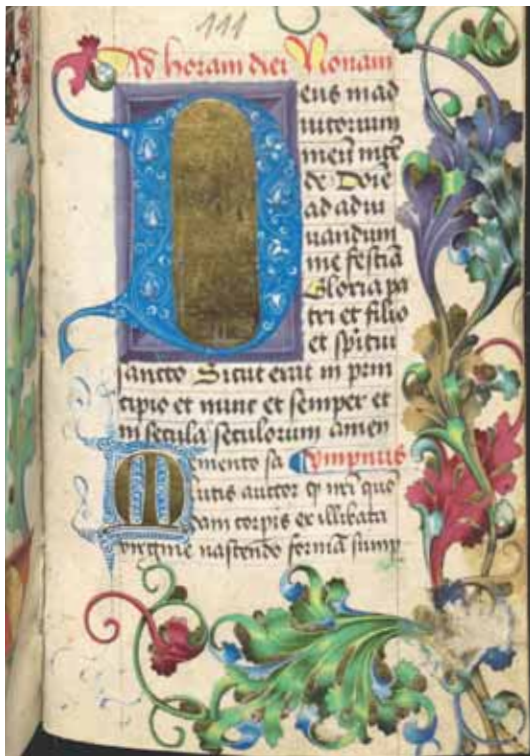 111
Ad horam diei Nonam
Deus in ad
iutorium
meū intē
de Domē
ad adiu
uandum
me festiā
Gloria pa
tri et filio
et spiritui
sancto Sicut erat in prin
cipio et nunc et semper et
in secula seculorum amen
Memento sa Ympnus
lutis auctor q̄ nr̄i quō
dam corpis ex illibata
virgine nascendo formā sump